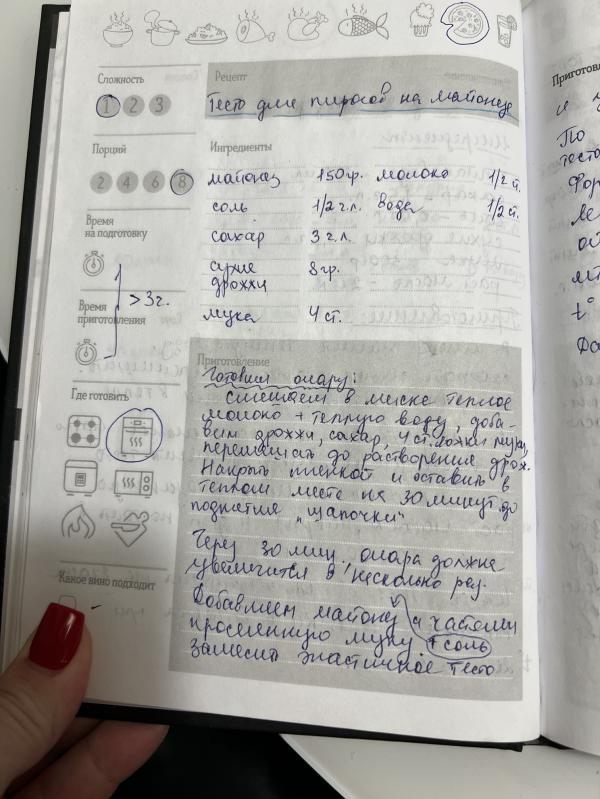 Сложность
1 2 3
Рецепт
Тесто для пирогов на майонезе
Порций
2 4 6 8
Ингредиенты
майонез 150гр. молоко 1/2 ст.
соль 1/2 ч.л. вода 1/2 ст.
сахар 3 ч.л.
сухие дрожжи 8гр.
мука 4 ст.
Время
на подготовку
Время
приготовления
>3ч.
Где готовить
Какое вино подходит
Приготовление
Готовим опару:
смешаем в миске теплое
молоко + теплую воду, доба-
вим дрожжи, сахар, 4 ст. ложки муки,
перемешать до растворение дрож.
Накрыть пленкой и оставить в
теплом месте на 30 минут до
поднятие „шапочки"
Через 30 мин., опара должна
увеличится в несколько раз.
Добавляем майонез и частями
просеянную муку. + соль
Замесить эластичное тесто
Приготовл
и
По
тесто
фор